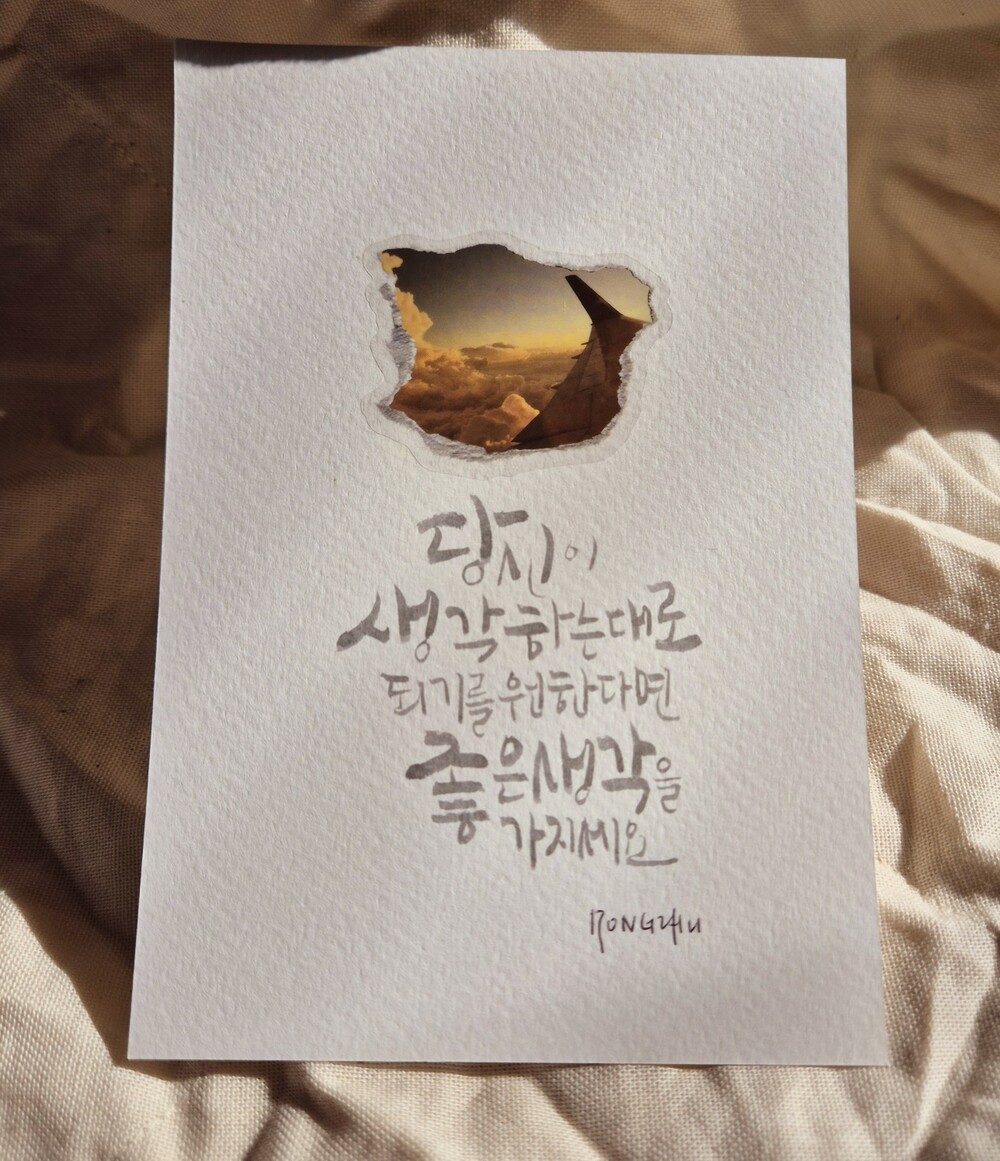 당신이
생각하는대로
되기를 원한다면
좋은생각을
가지세요
RONGZHU